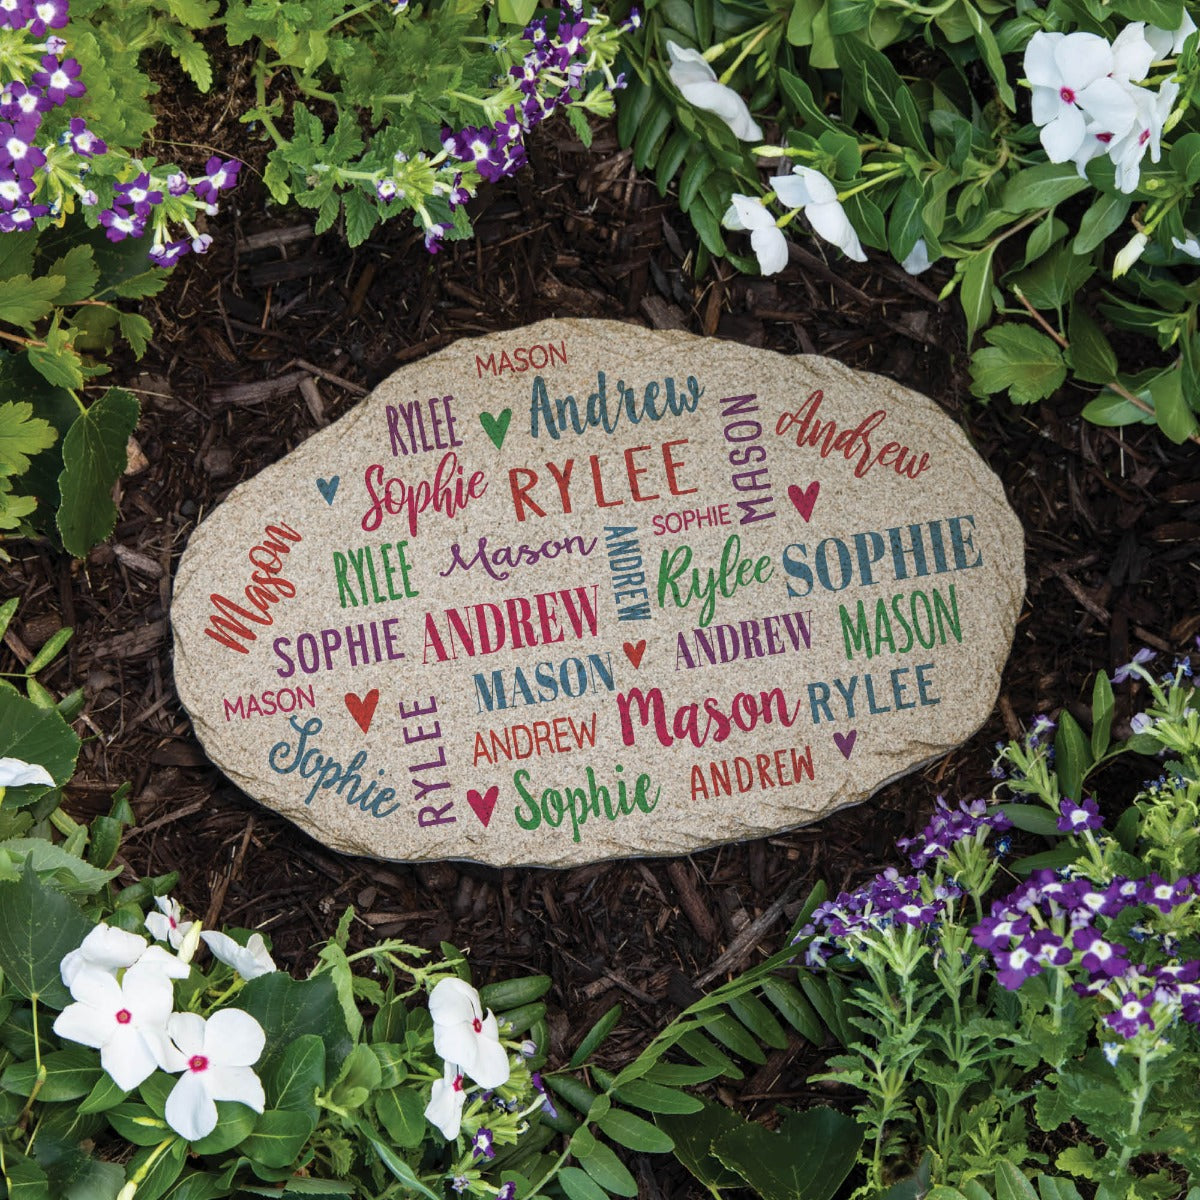 MASON
RYLEE Andrew MASON Andrew
Sophie RYLEE
SOPHIE
Mason RYLEE Mason ANDREW Rylee SOPHIE
SOPHIE ANDREW ANDREW MASON
MASON
MASON RYLEE Mason RYLEE
Sophie ANDREW
ANDREW
Sophie